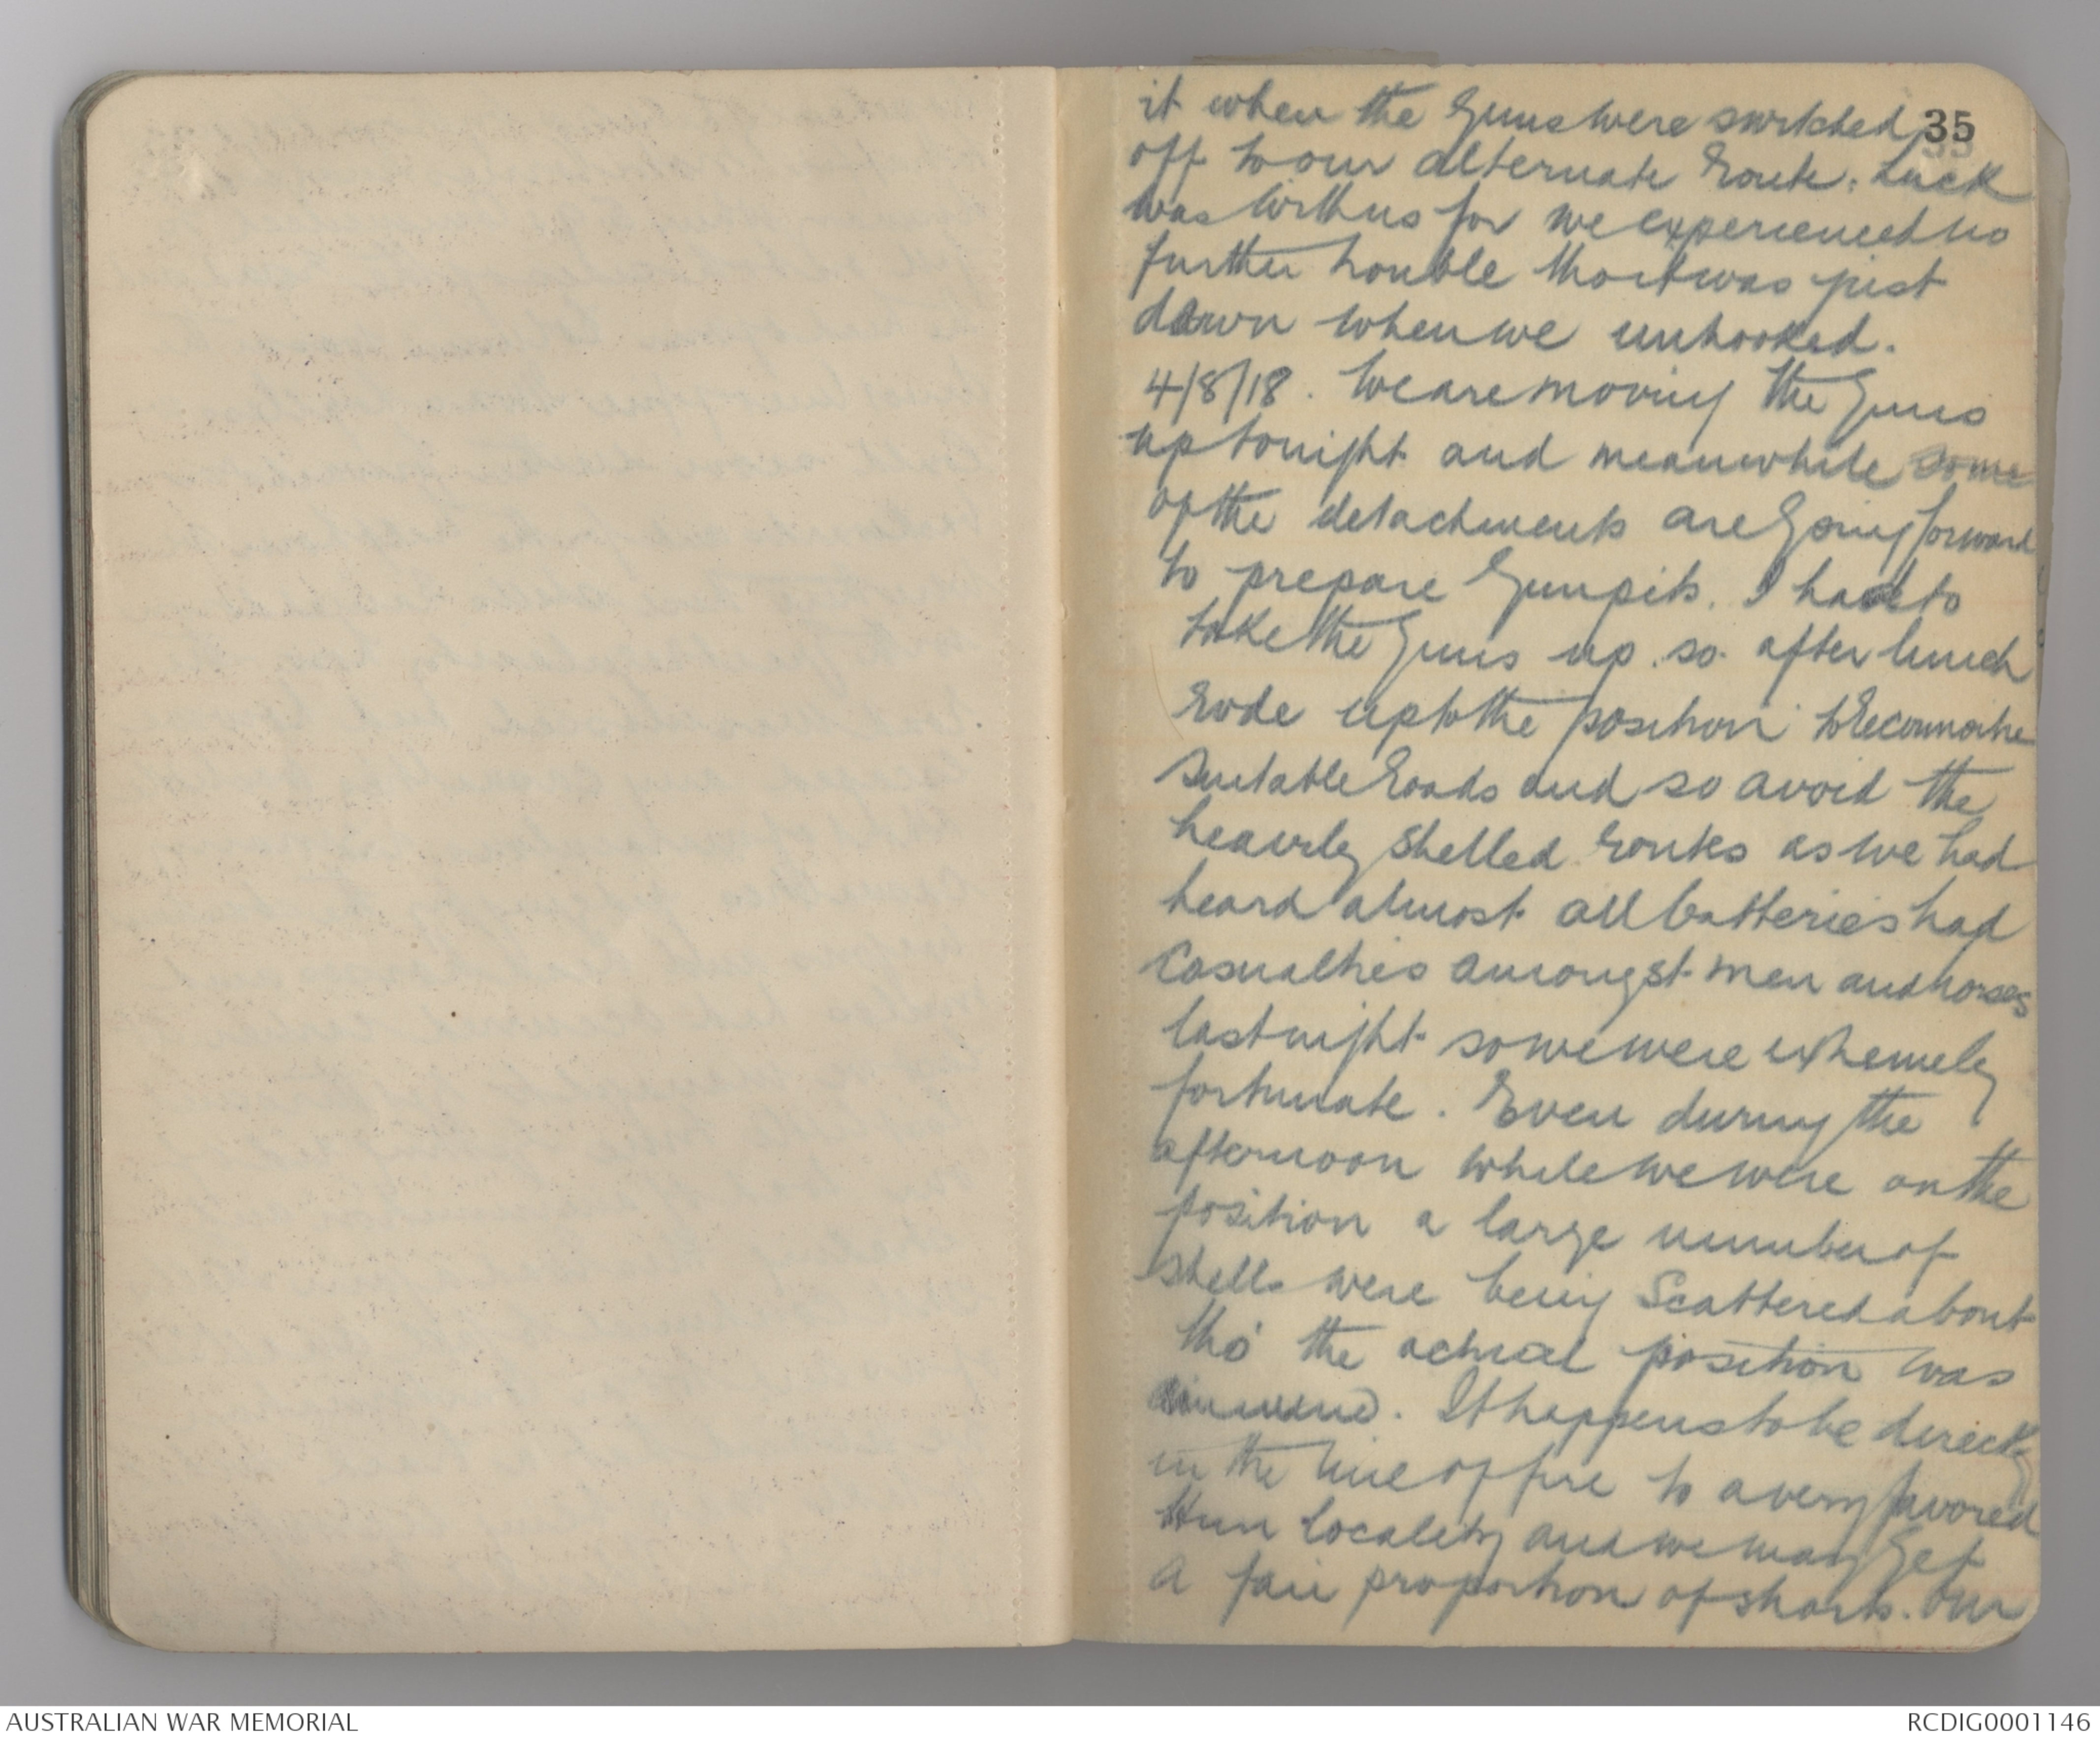 35
it when the Guns were switched
off to our alternate Route. Luck
was with us for we experienced no
further trouble tho it was just
dawn when we unhooked.
4/8/18. We are moving the Guns
up tonight and meanwhile some
of the detachments are Going forward
to prepare Gunpits. I had to
take the Guns up. so after lunch
Rode up to the position to Reconnoitre
suitable Roads and so avoid the
heavily shelled Routes as we had
heard almost all batteries had
Casualties amongst men and horses
last night so we were extremely
fortunate. Even during the
afternoon while we were on the
position a large number of
shells were being Scattered about
tho' the actual position was
immune. It happens to be directly
in the line of fire to a very favored
Hun locality and we may Get
a fair proportion of shorts. Our
AUSTRALIAN WAR MEMORIAL
RCDIG0001146